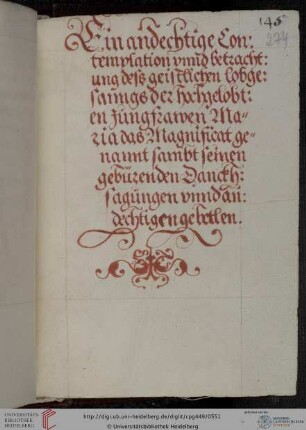 145
274
Ein andechtige Con:
templation vnnd betracht:
ung deß geistlichen lobge:
sanngs der hochgelobt:
en Jungfrawen Ma:
ria das Magnificat ge:
nannt sambt seinen
gebürenden Danckh:
sagungen vnnd an:
dechtigen gebetten.
UNIVERSITÄTS-
BIBLIOTHEK
HEIDELBERG
http://digi.ub.uni-heidelberg.de/diglit/cpg449/0551
© Universitätsbibliothek Heidelberg